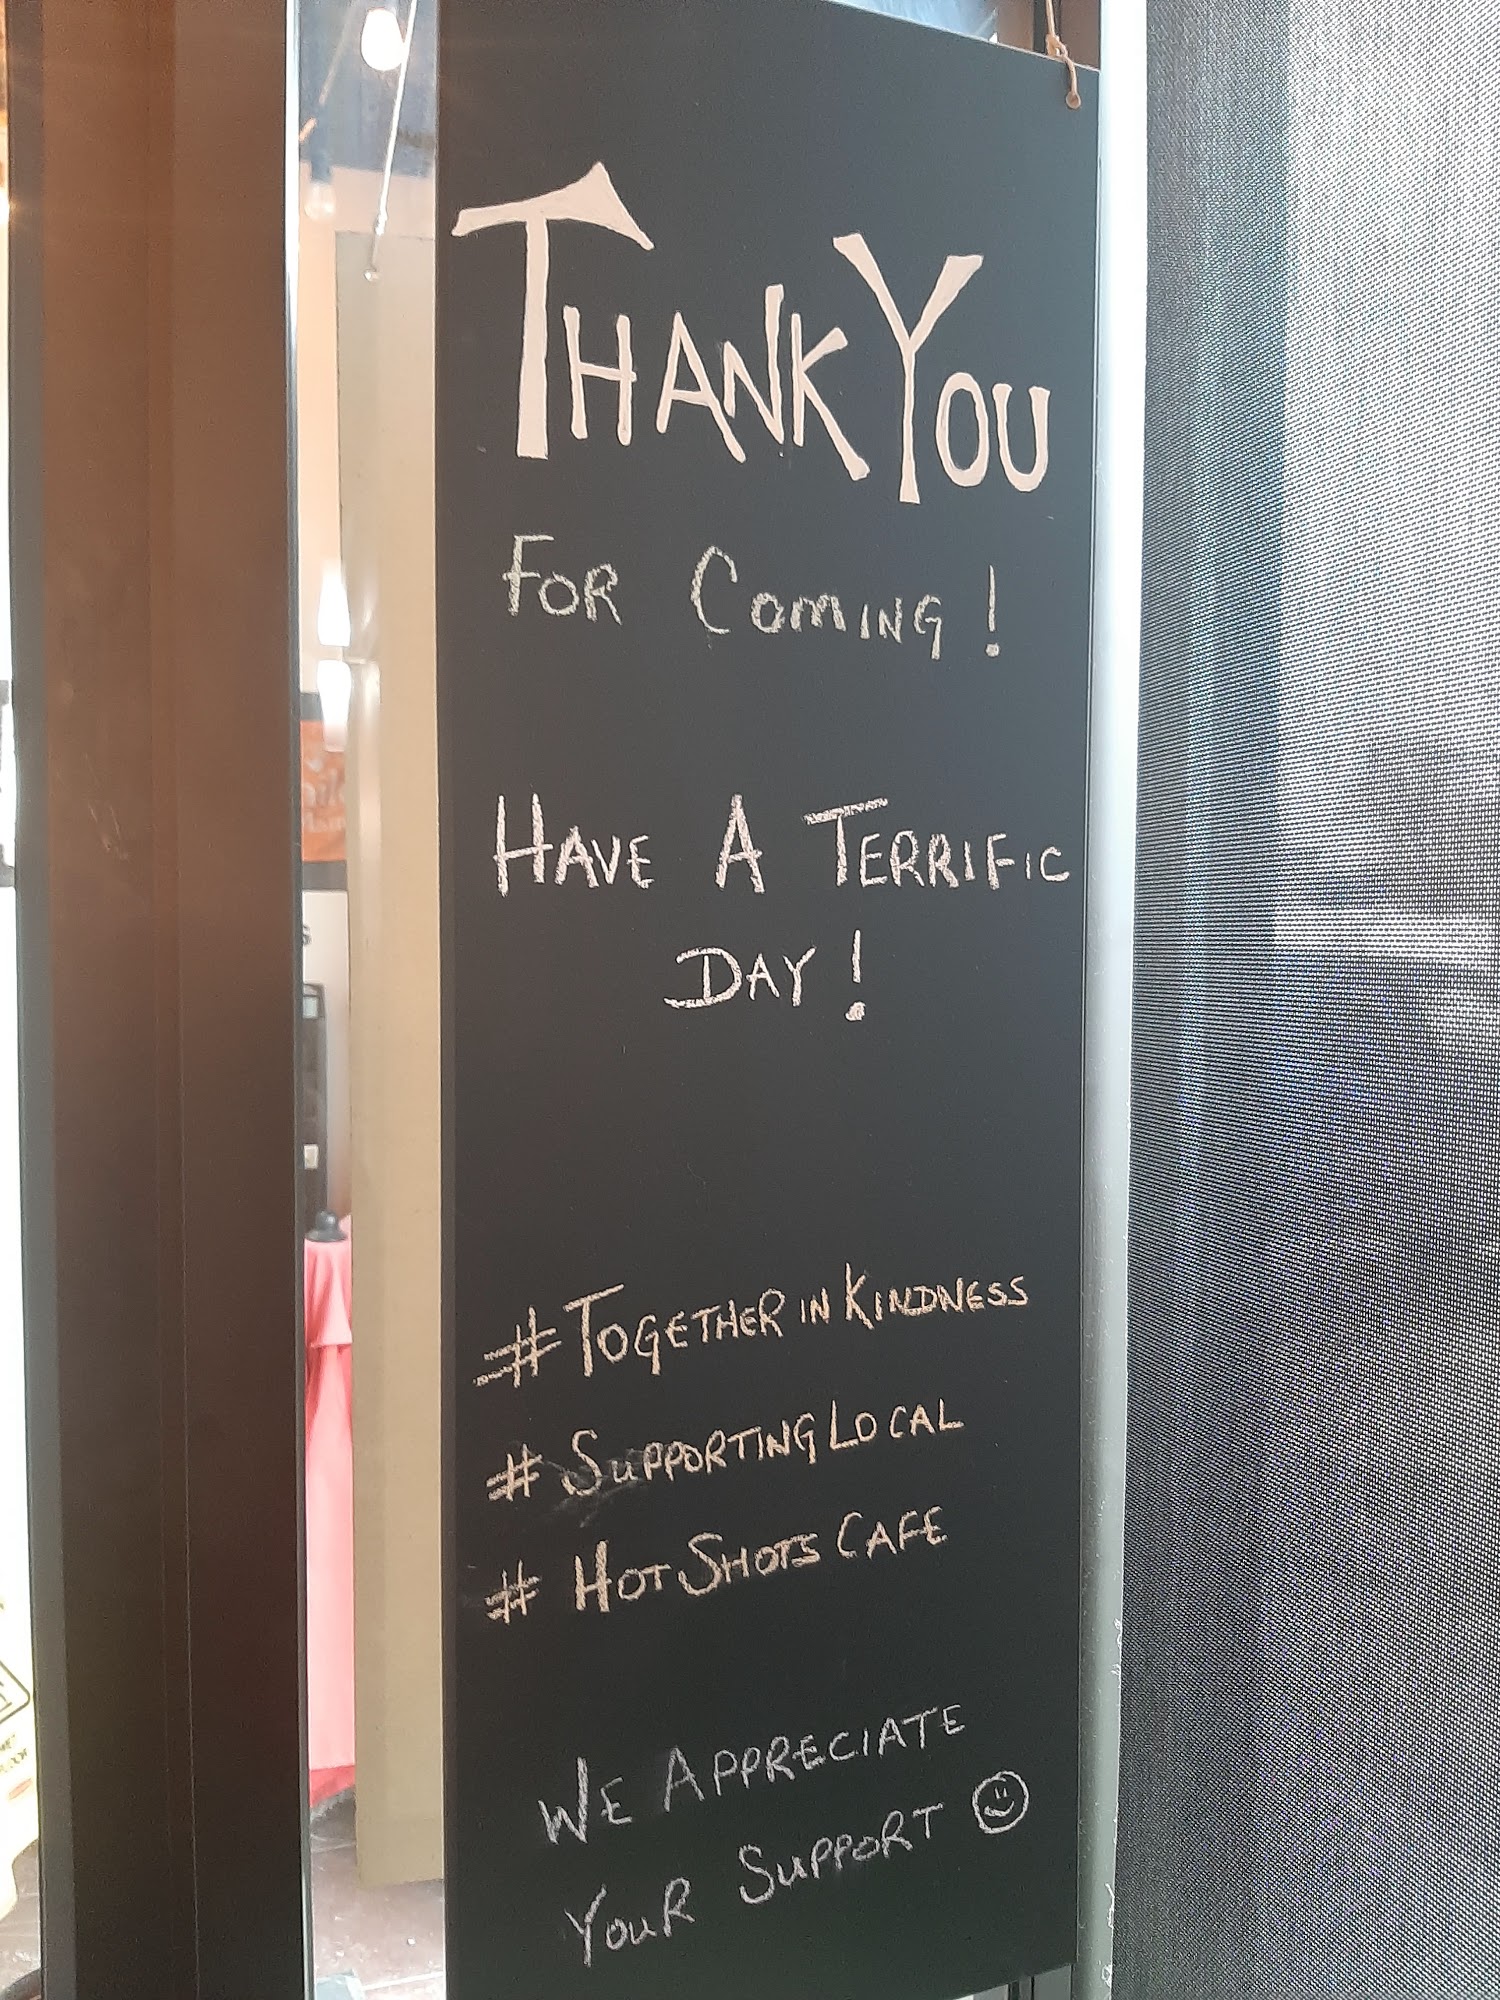 THANK YOU
FOR COMING!
HAVE A TERRIFIC
DAY!
#TOGETHER IN KINDNESS
# SUPPORTING LOCAL
# HOT SHOTS CAFE
WE APPRECIATE
YOUR SUPPORT ☺